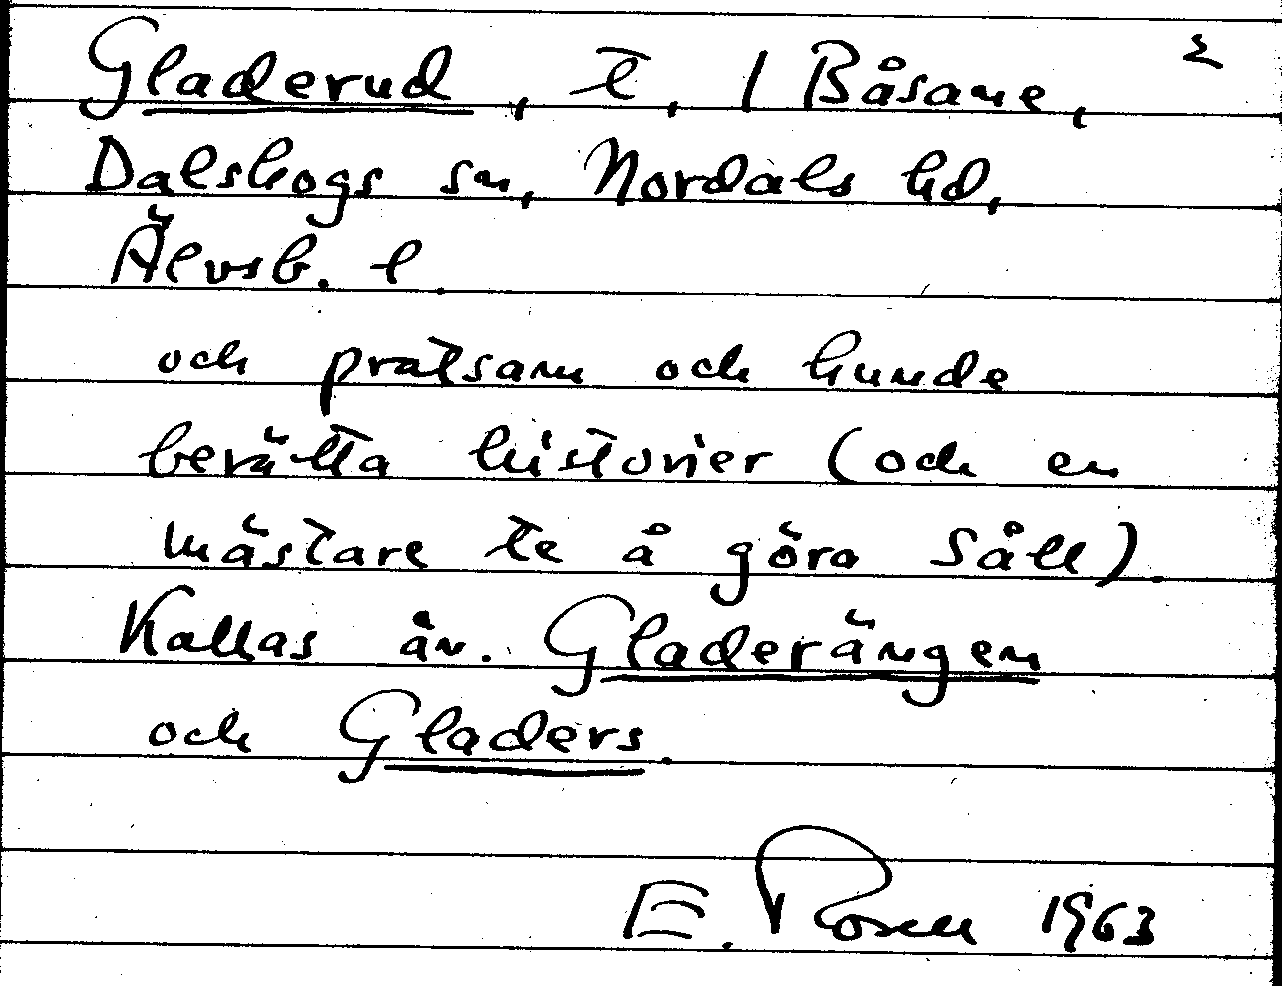 Gladerud, t, 1 Båsane, 2
Dalskogs sn, Nordals hd,
Älvsb. l.
och pratsam och kunde
berätta historier (och en
mästare te å göra såll).
Kallas äv. Gladerängen
och Gladers.
E. Rosell 1963